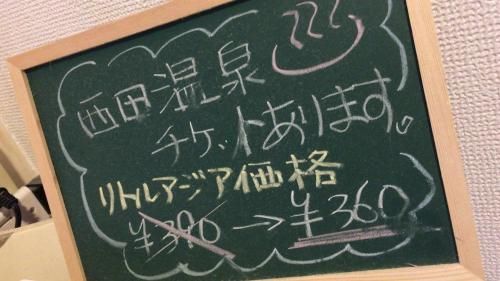 西田温泉♨
チケットあります♪
リトルアジア価格
¥390→¥360